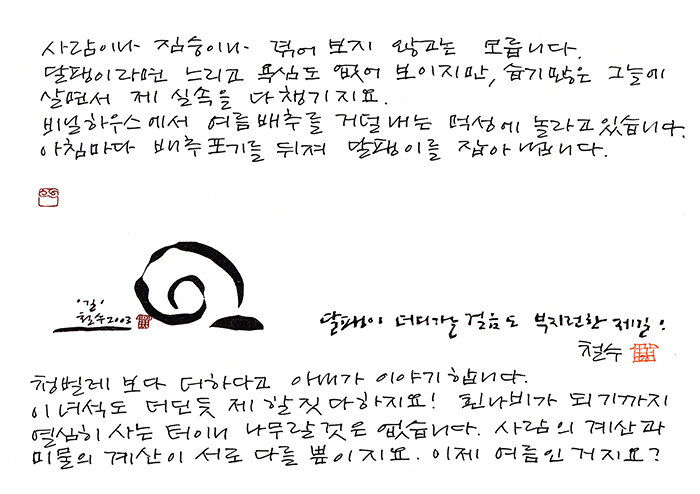 사람이나 짐승이나 겪어 보지 않고는 모릅니다.
달팽이라면 느리고 욕심도 없어 보이지만, 습기많은 그늘에
살면서 제 실속을 다 챙기지요.
비닐하우스에서 여름배추를 거덜내는 먹성에 놀라고있습니다.
아침마다 배추포기를 뒤져 달팽이를 잡아냅니다.
'길'
철수 2003
달팽이 더디가는 걸음도 부지런한 제길!
철수
청벌레보다 더하다고 아내가 이야기합니다.
이녀석도 더딘듯 제 할 짓 다하지요! 흰나비가 되기까지
열심히 사는 터이니 나무랄것은 없습니다. 사람의 계산과
미물의 계산이 서로 다를 뿐이지요. 이제 여름인거지요?